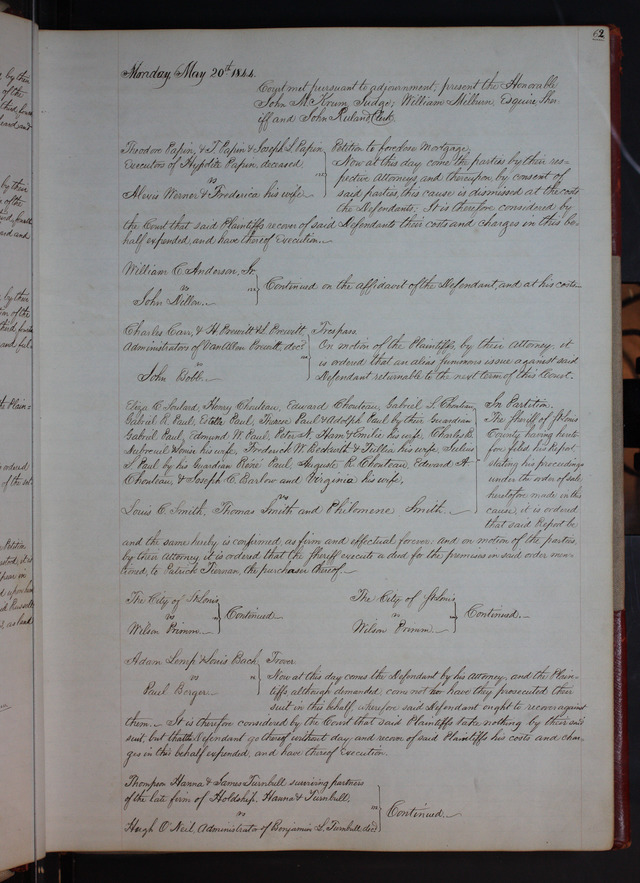 62
Monday, May 20th 1844.
Court met pursuant to adjournment, present the Honorable
John M. Krum Judge, William Milburn, Esquire Sher-
iff and John Ruland Clerk
Theodore Papin, & T. Papin & Joseph L Papin,
Executors of Hypolite Papin, deceased
vs
Alevis Werner & Frederica his wife
Petition to foreclose Mortgage,
Now at this day come the parties by their res-
pective attorneys and thereupon, by consent of
said parties, this cause is dismissed at the costs
the Defendants: It is therefore considered by
the Court that said Plaintiffs recover of said Defendants their costs and charges in this be-
half expended, and have thereof execution.
William C. Anderson, Jr.
vs
John Dillon.
Continued on the affidavit of the Defendant, and at his costs
Charles Carr, & H. Prewitt & Prewitt,
Administrators of VanAllen Prewitt, decd
vs
John Bobb.
Trespass
On motion of the Plaintiffs, by their Attorney, it
is ordered that an alias summons issue against said
Defendant returnable to the next term of this Court.
Eliza C. Soulard, Henry Chouteau, Edward Chouteau, Gabriel S. Chouteau,
Gabriel R. Paul, Estelle Paul, Therese Paul & Adolph Paul by their Guardian
Gabriel Paul, Edmund W. Paul, Peter N. Ham & Emilie his wife, Charles H.
Louise his wife, Frederick W. Beckwith & Tullia his wife, Julius
S Paul by his Guardian René Paul, Auguste R. Chouteau, Edward A
Chouteau, & Joseph C. Barlow and Virginia his wife,
vs
Louis C. Smith, Thomas Smith and Philomene Smith
In Partition.
The Sheriff of St Louis
County having hereto-
fore filed his Report
stating his proceedings
under the order of sale
heretofore made in this
cause, it is ordered
that said Report be
and the same hereby is confirmed, as firm and effectual forever: and on motion of the parties,
by their attorney, it is ordered that the Sheriff execute a deed for the premises in said order men-
tioned, to Patrick Tiernan, the purchaser thereof.
The City of St Louis
vs
Wilson Primm.
Continued.
The City of St Louis
vs
Wilson Primm.
Continued.
Adam Lemp & Louis Bach
vs
Paul Berger.
Trover
Now at this day comes the Defendant by his attorney, and the Plain-
tiffs although demanded, come not nor have they prosecuted their
suit in this behalf, wherefore said Defendant ought to recover against
them. It is therefore considered by the Court that said Plaintiffs take nothing by their said
suit, but that the Defendant go thereof without day and recover of said Plaintiffs his costs and char-
ges in this behalf expended, and have thereof Execution
Thompson Hanna & James Turnbull surviving partners
of the late firm of Holdship, Hanna & Turnbull,
vs
Hugh O'Neil, Administrator of Benjamin S. Turnbull, decd
Continued.